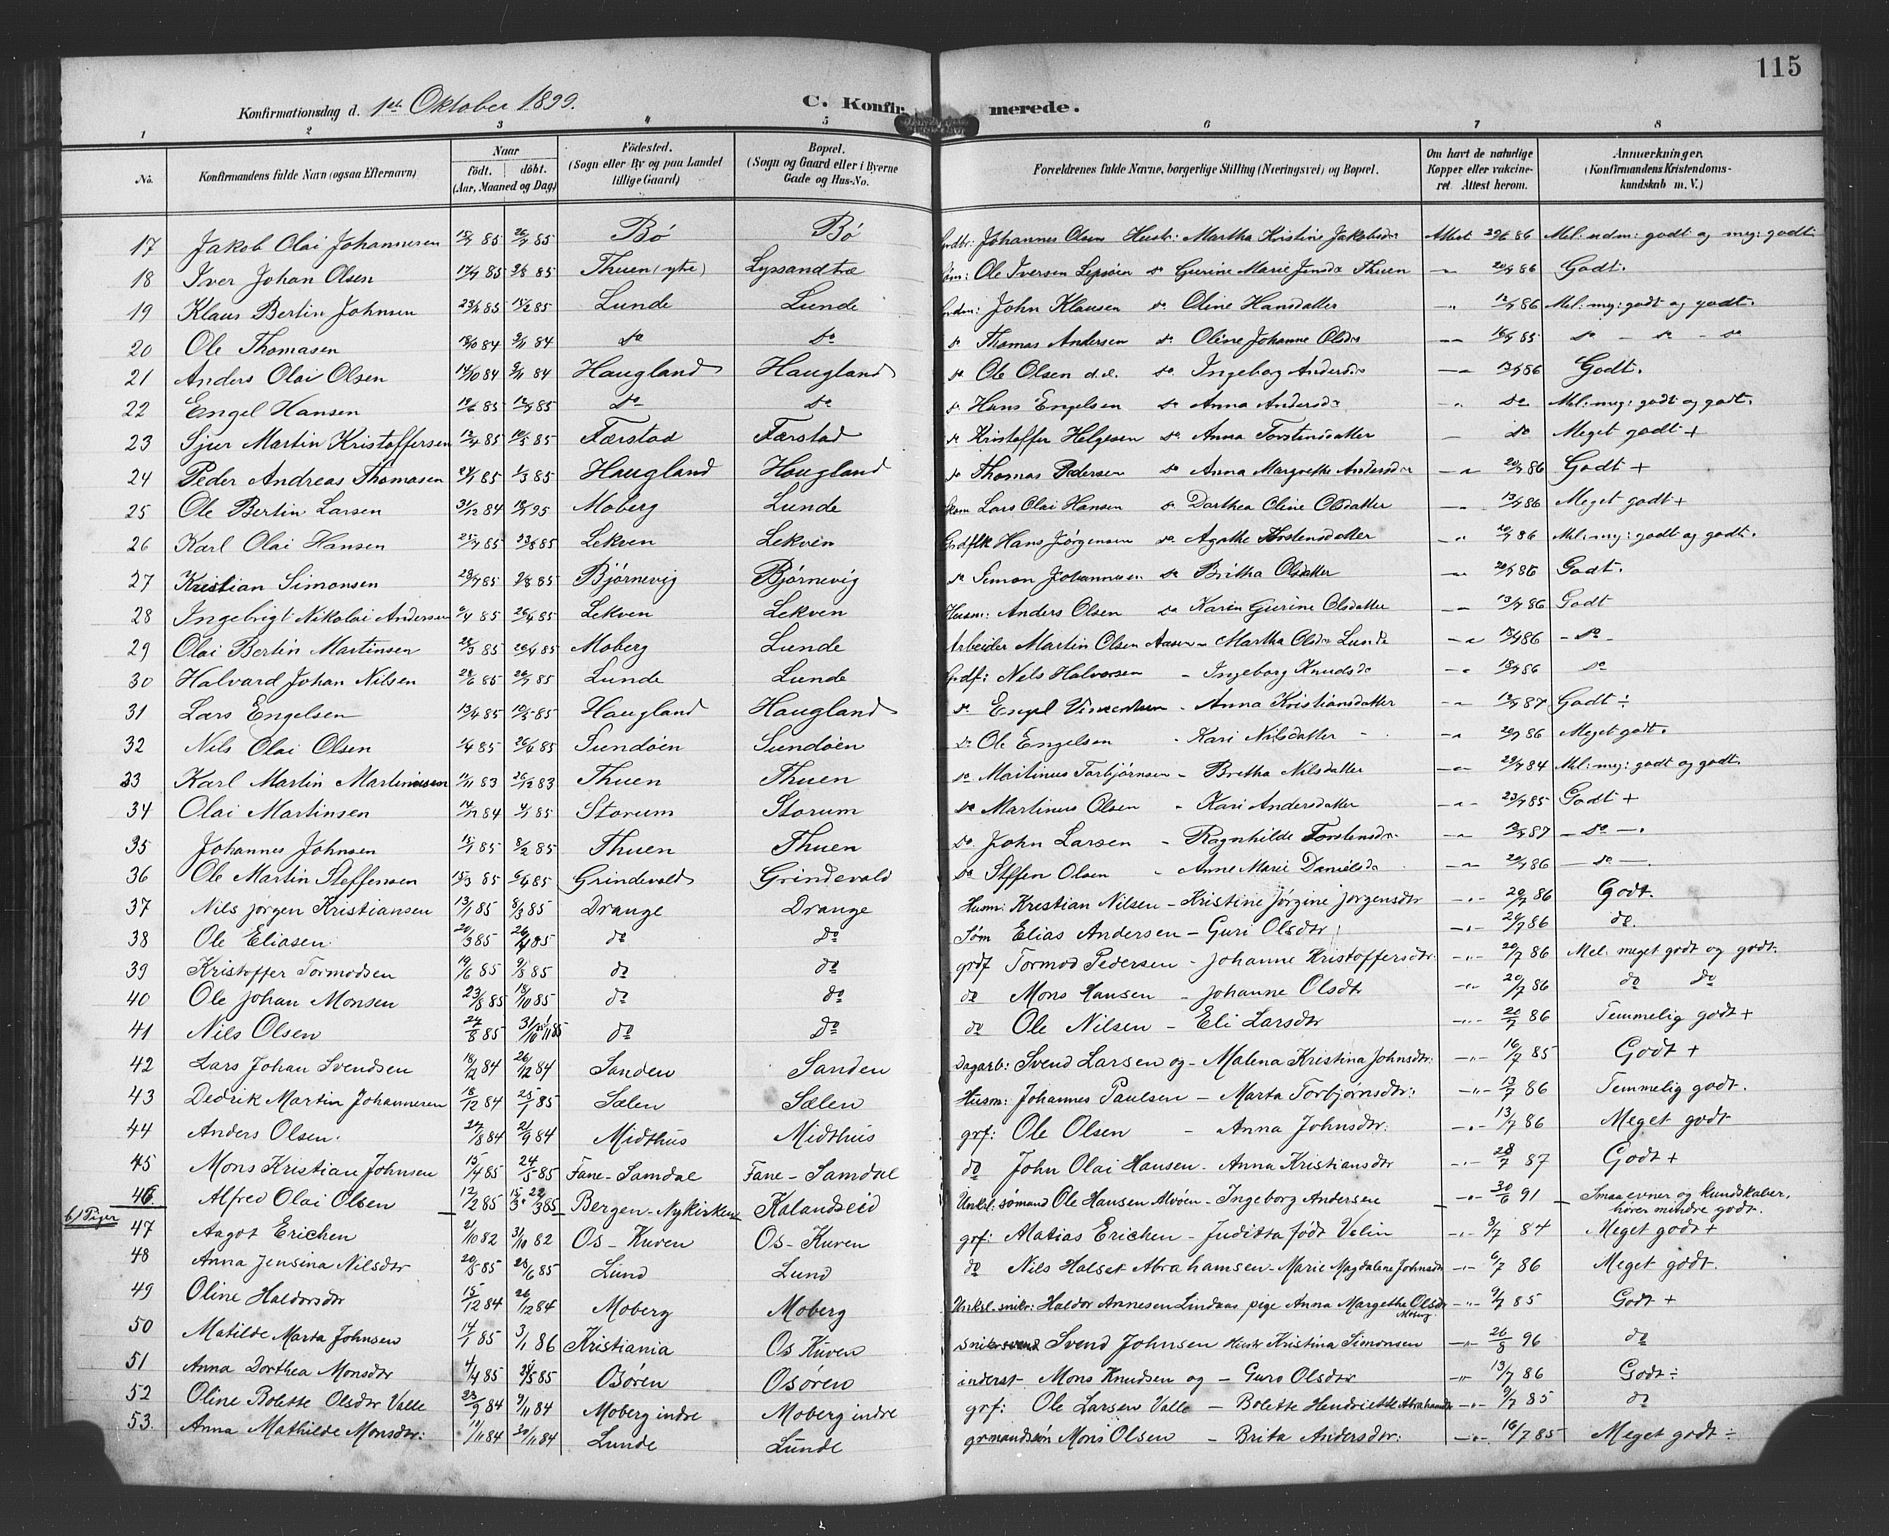 115
Konfirmationsdag d. 1ste Oktober 1899.
C. Konfirmerede.
1 2 3 4 5 6 7 8
No. Konfirmandens fulde Navn (ogsaa Efternavn) Naar født. døbt. (Aar, Maaned og Dag) Fødested. (Sogn eller By og paa Landet tillige Gaard) Bopæl. (Sogn og Gaard eller i Byerne Gade og Hus-No. Forældrenes fulde Navne, borgerlige Stilling (Næringsvei) og Bopæl. Om havt de naturlige Kopper eller vakcineret. Attest herom. Anmærkninger. (Konfirmandens Kristendomskundskab m. V.)
17 Jakob Olai Johannesen 85 85 Bø Bø Johannes Olsen Hustr: Martha Kristine Jakobsdr Attest 86 Mel: udm: godt og mg: godt
18 Iver Johan Olsen 85 85 Thuen (ytre) Lyssandtræ Ole Iversen Lepsøen do Gurine Marie Jensdr Thuen 86 Godt.
19 Klaus Bertin Johnsen 85 85 Lunde Lunde John Klausen do Oline Hansdatter 86 Mel: mg: godt og godt.
20 Ole Thomasen 84 84 do do do Thomas Andersen do Oline Johanne Olsdr 85 do - do - do
21 Anders Olai Olsen 84 84 Haugland Haugland do Ole Olsen d.e. do Ingeborg Andersdr 86 Godt.
22 Engel Hansen 85 85 do do do Hans Engelsen do Anna Andersdr do Mel: mg: godt og godt.
23 Sjur Martin Kristoffersen 85 85 Færstad Færstad do Kristoffer Helgesen do Anna Torstensdatter do Meget godt +
24 Peder Andreas Thomasen 85 85 Haugland Haugland do Thomas Pedersen do Anna Margrethe Andersdr 86 Godt +
25 Ole Bertin Larsen 84 95 Moberg Lunde Lars Olai Hansen do Dorthea Oline Olsdatter 86 Meget godt +
26 Karl Olai Hansen 85 85 Lekven Lekven Hans Jørgensen do Agathe Torstensdatter 86 Mel: mg: godt og godt.
27 Kristian Simonsen 85 85 Bjørnevig Bjørnevig do Simon Johannesen do Britha Olsdatter 86 Godt.
28 Ingebrigt Nikolai Andersen 85 85 Lekven Lekven Husm: Anders Olsen do Karen Gurine Olsdatter 86 Godt
29 Olai Bertin Martinsen 85 85 Moberg Lunde Arbeider Martin Olsen Aasen - Martha Olsdr Lunde 86 - do -
30 Halvard Johan Nilsen 85 85 Lunde Lunde Grdf: Nils Halvorsen - Ingeborg Knudsdr 86 do
31 Lars Engelsen 85 85 Haugland Haugland do Engel Vincentsen - Anna Kristiansdatter 87 Godt ÷
32 Nils Olai Olsen 85 85 Sundøen Sundøen do Ole Engelsen - Kari Nilsdatter - 86 Meget godt.
33 Karl Martin Martinussen 83 83 Thuen Thuen do Martinus Torbjørnsen - Bretha Nilsdatter 84 Mel: mg: godt og godt.
34 Olai Martinsen 84 85 Storum Storum do Martinus Olsen - Kari Andersdatter 85 Godt +
35 Johannes Johnsen 85 85 Thuen Thuen do John Larsen - Ragnhilde Torstensdr. 87 - do -.
36 Ole Martin Steffensen 85 85 Grindevold Grindevold do Steffen Olsen - Anne Marie Danielsdr 86 - do -.
37 Nils Jørgen Kristiansen 13/1 85 8/3 85 Drange Drange Husm: Kristian Nilsen - Kristine Jørgine Jørgensdtr 20/7 86 Godt.
38 Ole Eliasen 20/3 85 85 do do Søm Elias Andersen - Guri Olsdtr 20/7 86 do.
39 Kristoffer Tormodsen 19/6 85 9/8 85 do do grdf Tormod Pedersen - Johanne Kristoffersdtr 20/7 86 Mel. meget godt og godt.
40 Ole Johan Monsen 23/8 85 18/10 85 do do do Mons Hansen - Johanne Olsdtr 20/7 86 do do
41 Nils Olsen 85 31/10 85 do do do Ole Nilsen - Eli Larsdtr 20/7 86 Temmelig godt +
42 Lars Johan Svendsen 18/12 84 26/12 84 Sanden Sanden Dagarb: Svend Larsen og - Malena Kristina Johnsdtr: 16/7 85 Godt +
43 Dedrik Martin Johannesen 18/12 84 25/1 85 Sælen Sælen Husm: Johannes Paulsen - Marta Torbjørnsdtr: 13/7 86 Temmelig godt.
44 Anders Olsen. 24/8 84 21/9 84 Midthus Midthus grf: Ole Olsen - Anna Johnsdtr. 13/7 86 Meget godt
45 Mons Kristian Johnsen 15/4 85 24/5 85 Fane - Samdal Fane - Samdal do John Olai Hansen - Anna Kristiansdtr 28/7 87 Godt +
46 Alfred Olai Olsen 12/2 85 85 Bergen - Nykirken Kalandseid Unkrl. sømand Ole Hansen Alvøen - Ingeborg Andersen 30/6 91 Smaa evner og kundskaber, hører mindre godt.
b/ Piger
47 Aagot Erichen 2/10 82 3/10 82 Os - Kuven Os - Kuven grf: Matias Erichen - Juditta født Velin 3/7 84 Meget godt +
48 Anna Jensina Nilsdtr 20/5 85 28/6 85 Lund Lund do Nils Halset Abrahamsen - Marie Magdalene Johnsdtr 6/7 86 Meget godt.
49 Oline Haldorsdtr 15/12 84 26/12 84 Moberg Moberg Unkrl. snikr: Haldor Annesen Lindaas pige Anna Margethe Olsdtr Moberg 9/7 85 Godt +
50 Matilde Marta Johnsen 14/1 85 3/1 86 Kristiania Os Kuven snikersvend Svend Johnsen Hustr Kristina Simonsen 26/8 96 do
51 Anna Dorthea Monsdtr 4/4 85 85 Osøren Osøren inderst Mons Knudsen og - Guro Olsdtr 13/7 86 Godt ÷
52 Oline Bolette Olsdtr Valle 23/9 84 9/11 84 Moberg indre Moberg indre grf: Ole Larsen Valle - Bolette Hendriette Abrahamsdtr 9/7 85 do
53. Anna Mathilde Monsdtr: 11/11 84 30/11 84 Lunde Lunde Mons Olsen - Brita Andersdtr: 16/7 85 Meget godt ÷